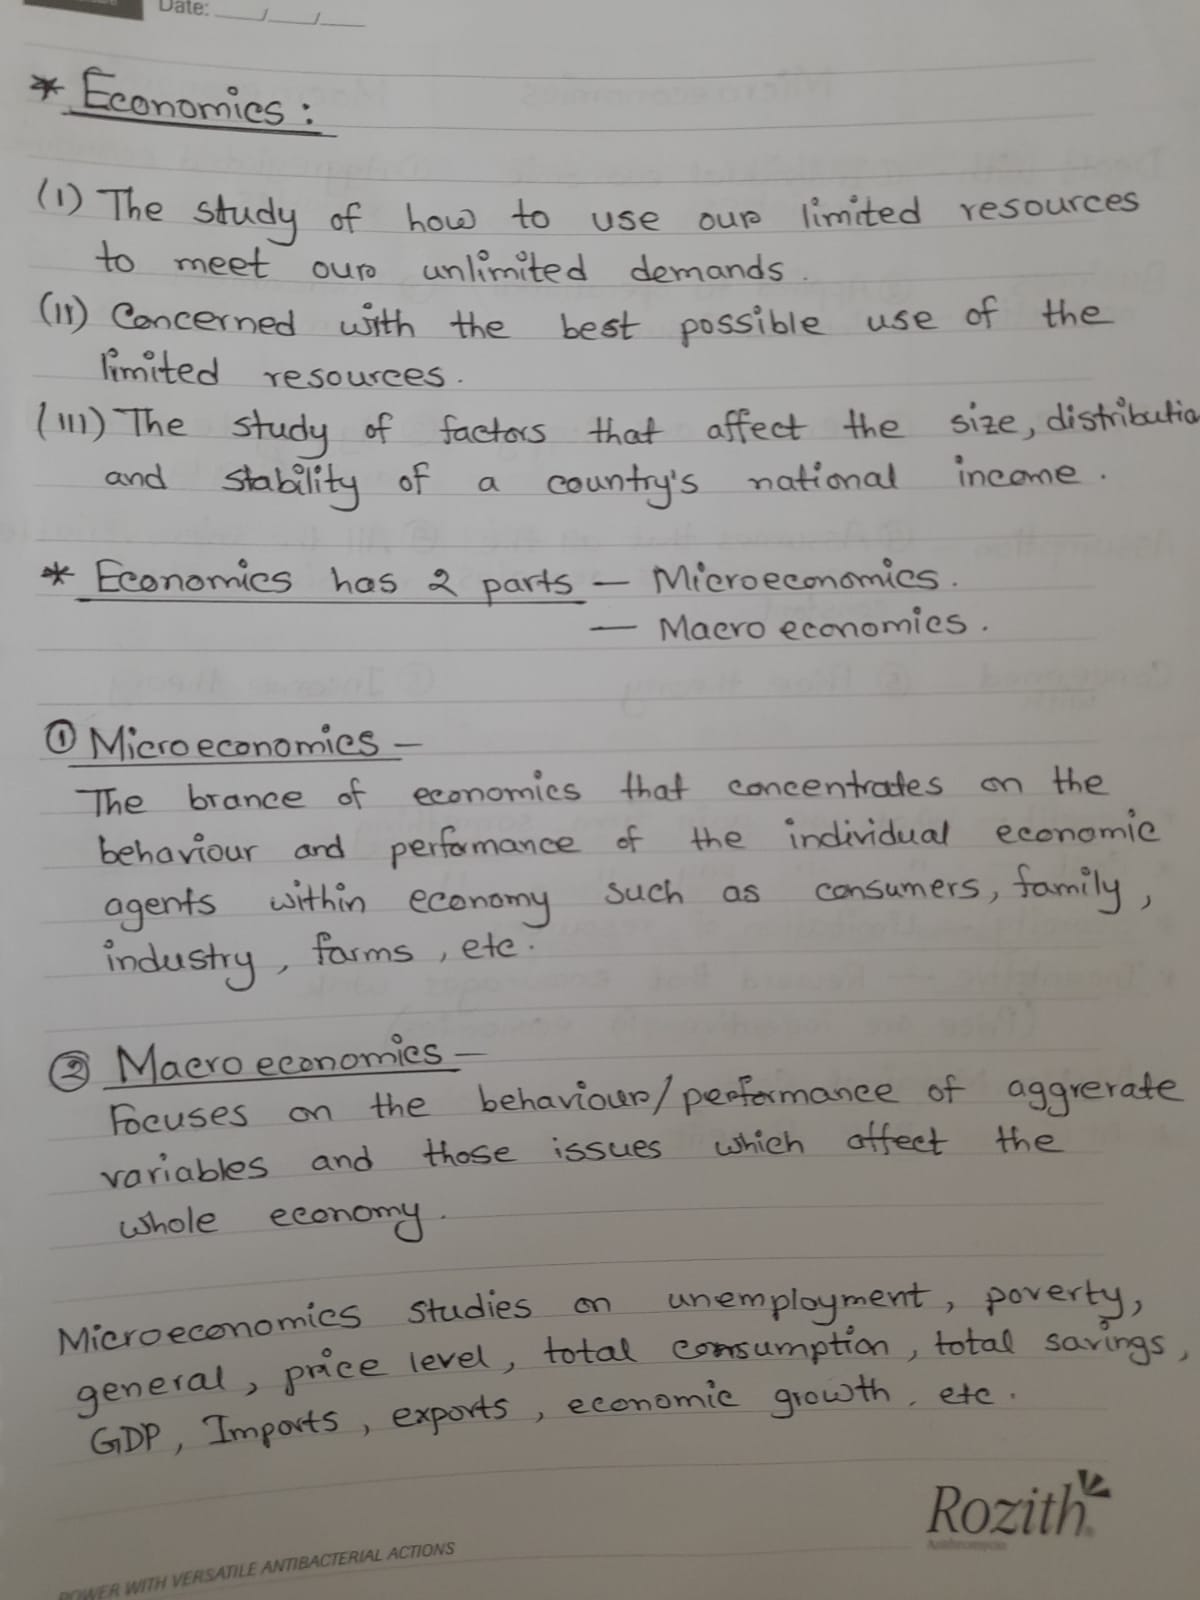 Date: __/__/__
* Economics:
(I) The study of how to use our limited resources
to meet our unlimited demands.
(II) Concerned with the best possible use of the
limited resources.
(III) The study of factors that affect the size, distributio
and stability of a country's national income.
* Economics has 2 parts — Microeconomics.
— Macroeconomics.
① Microeconomics —
The brance of economics that concentrates on the
behaviour and performance of the individual economic
agents within economy such as consumers, family,
industry, farms, etc.
② Macroeconomics —
Focuses on the behaviour/performance of aggrerate
variables and those issues which affect the
whole economy.
Microeconomics studies on unemployment, poverty,
general, price level, total consumption, total savings,
GDP, Imports, exports, economic growth, etc.
Rozith
Azithromycin
POWER WITH VERSATILE ANTIBACTERIAL ACTIONS